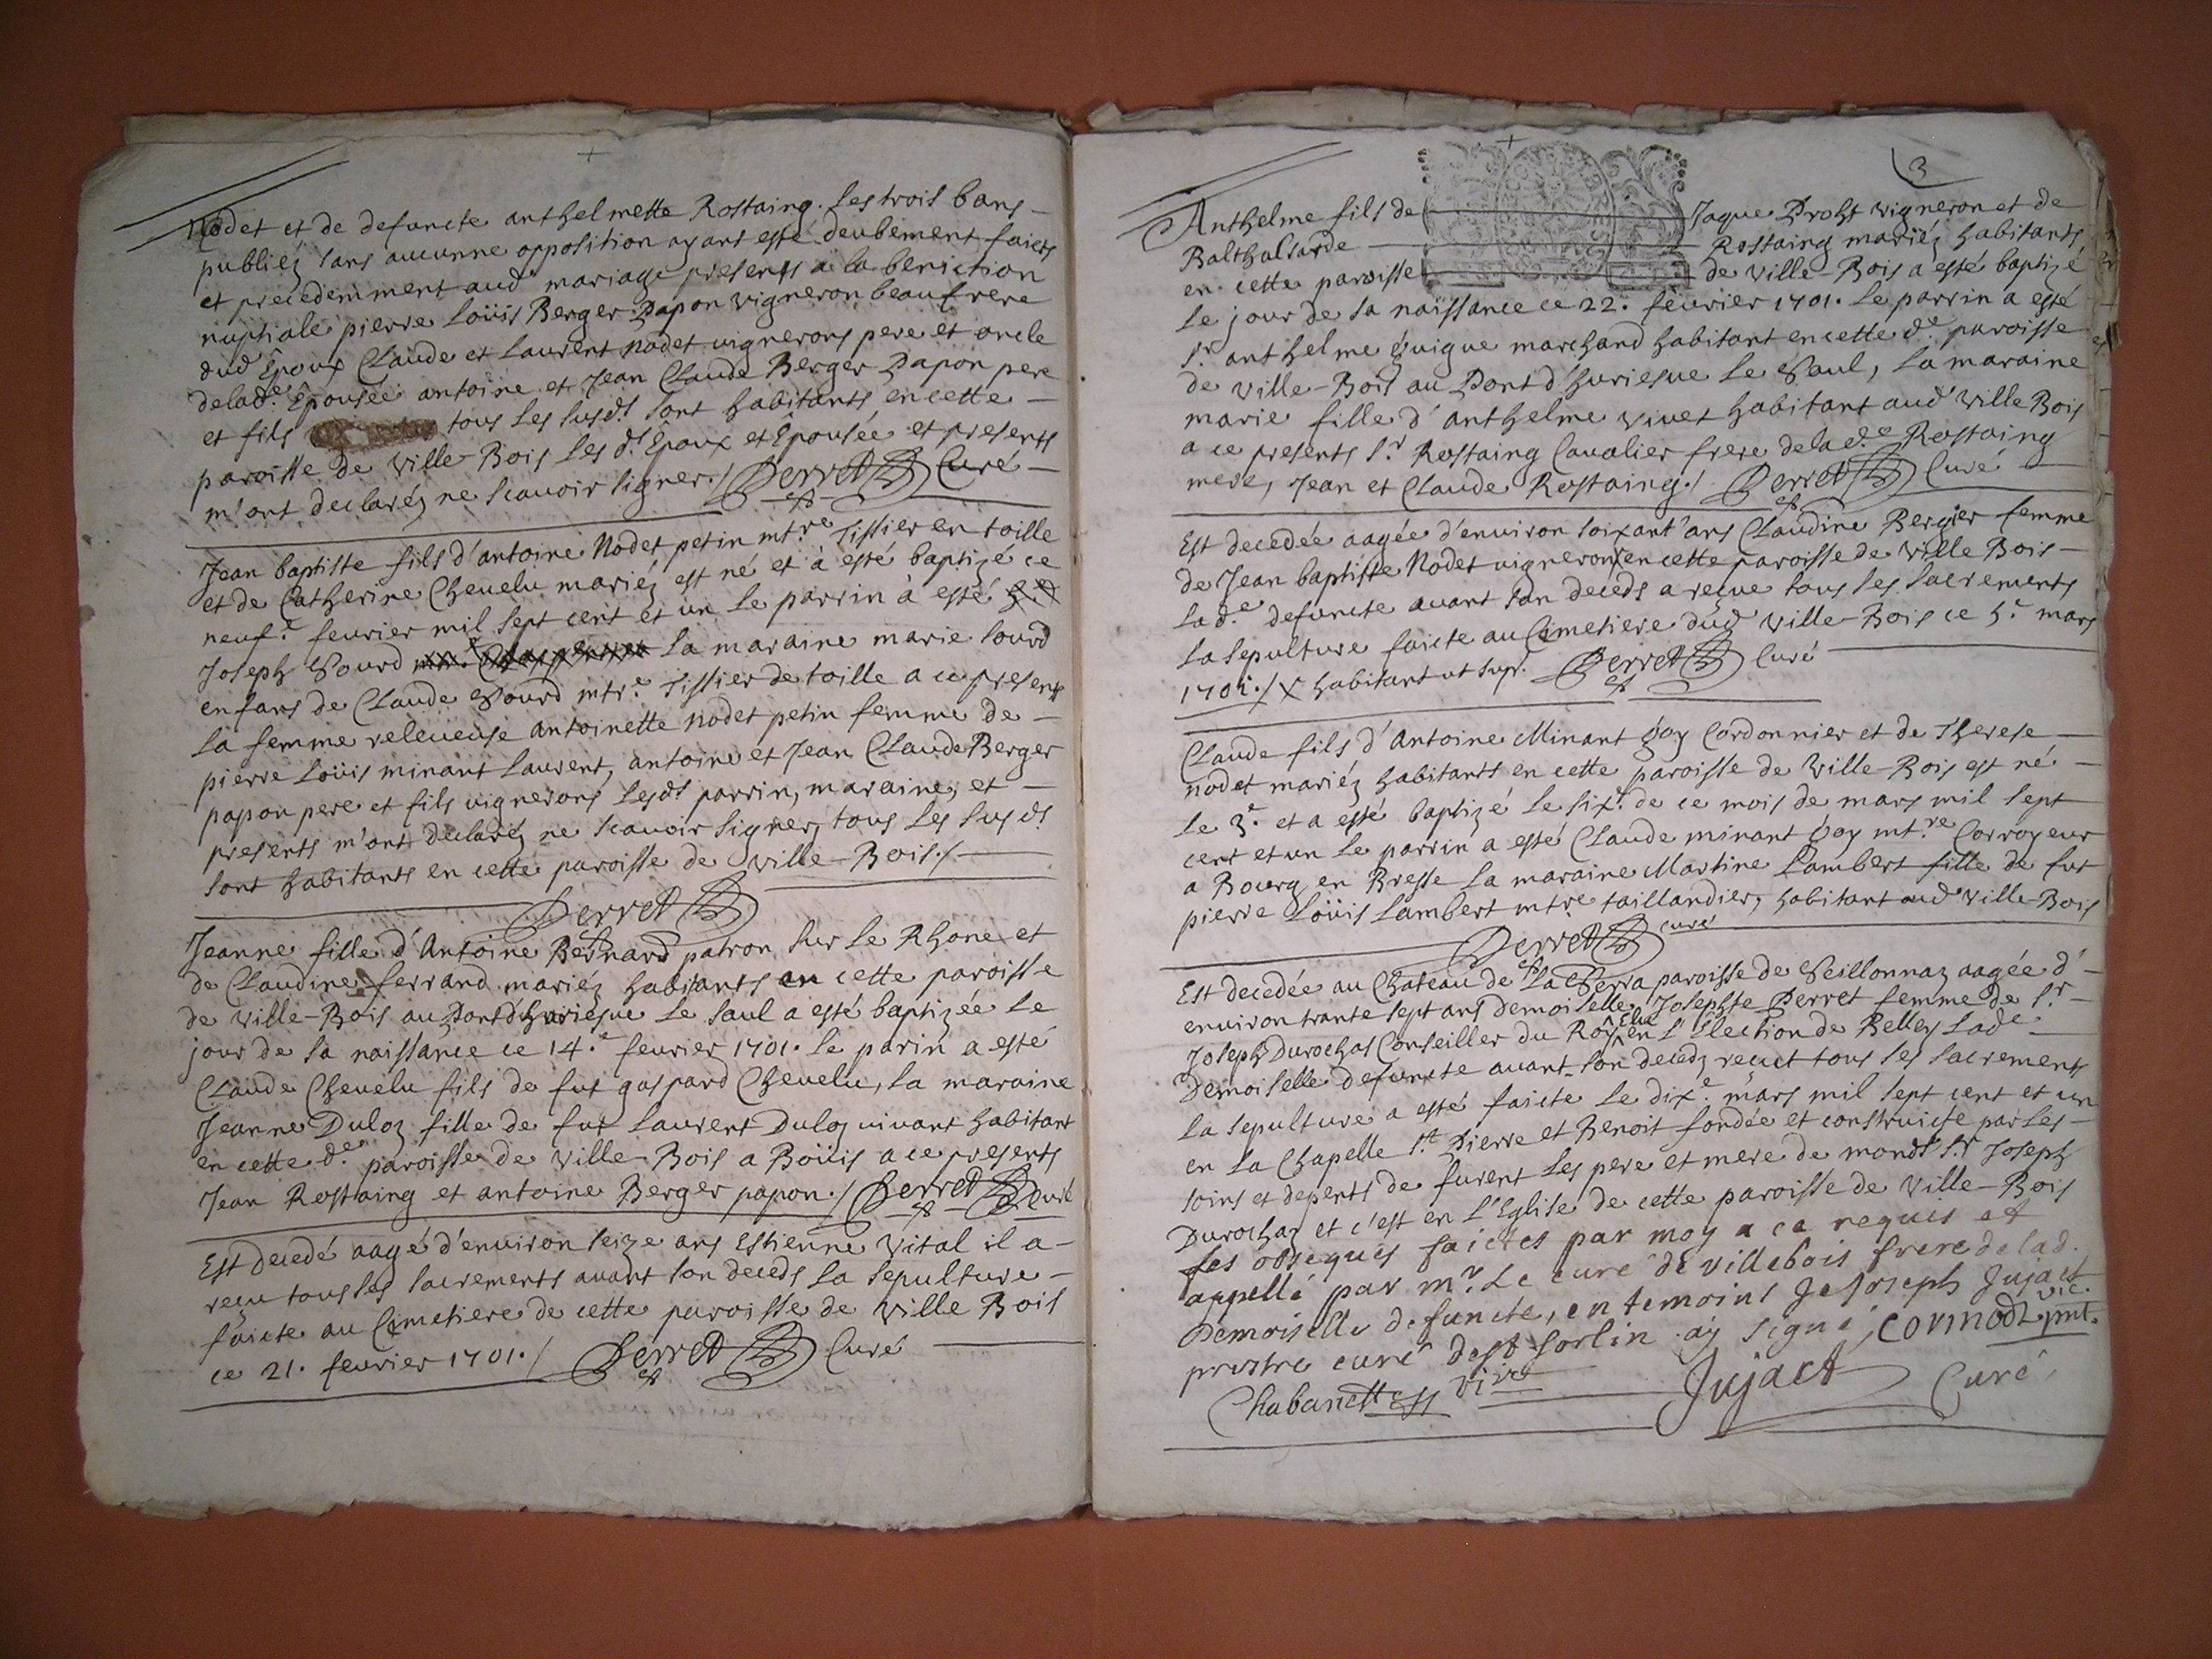 Nodet et de defuncte anthelmette Rostaing. Les trois bans
publiéz sans aucunne opposition ayant esté deubement faicts
et precedemment aud mariage presents a la beniction
nuptiale pierre Loüis Berger Papon vigneron beaufrere
dud Époux Claude et Laurent nodet vignerons pere et oncle
delade. Epousée antoine et Jean Claude Berger Papon pere
et fils tous les susds sont habitants en cette
paroisse de Ville-Bois les ds Époux et Epousée et presents
m'ont declaréz ne scauoir signer./ Perret Curé
Jean baptiste fils d'antoine Nodet petin mtre Tissier en toille
et de Catherine Cheuelu mariéz est né et à esté baptizé ce
neufe feurier mil sept cent et un le parrin à esté
Joseph Sourd la maraine marie sourd
enfans de Claude Sourd mtre Tissier de toille a ce presents
la femme releueuse Antoinette nodet petin femme de
pierre Loüis minant Laurent, antoine et Jean Claude Berger
papon pere et fils vignerons lesds parrin, maraine, et
presents m'ont declaréz ne scauoir signer, tous les susds
sont habitants en cette paroisse de Ville-Bois./
Perret
Jeanne fille d'Antoine Besnard patron sur le Rhone et
de Claudine ferrand mariéz habitants en cette paroisse
de Ville-Bois au le saul a esté baptizée le
jour de sa naissance ce 14.e feurier 1701. le parin a esté
Claude Cheuelu fils de fut gaspard Cheuelu, la maraine
Jeanne Duloz fille de fut Laurent Duloz viuant habitant
en cette de. paroisse de Ville-Bois a Boüis a ce presents
Jean Rostaing et antoine Berger papon./ Perret Curé
Est decedé aagé d'enuiron seize ans Estienne Vital il a
reçu tous les sacrements auant son deceds la sepulture
faicte au Cimetiere de cette paroisse de Ville Bois
ce 21. feurier 1701./ Perret Curé
3
Anthelme fils de Jaque Prost vigneron et de
Balthalsarde Rostaing mariéz habitants
en cette paroisse de Ville-Bois a esté baptizé
le jour de sa naissance ce 22. feurier 1701. le parrin a esté
sr anthelme guigue marchand habitant en cette de paroisse
de Ville-Bois au le Saul, la maraine
marie fille d'anthelme viuet habitant aud Ville Bois
a ce presents sr Rostaing Caualier frere delade Rostaing
mere, Jean et Claude Rostaing./ Perret Curé
Est decedée aagée d'enuiron soixant'ans Claudine Bergier femme
de Jean baptiste Nodet vigneron X en cette paroisse de Ville Bois
lade defuncte auant son deceds a reçue tous les sacrements
la sepulture faicte au Cimetiere dud Ville-Bois ce 5.e mars
1701./ X habitant ut supr. Perret Curé
Claude fils d'Antoine Minant goy Cordonnier et de Therese
nodet mariéz habitants en cette paroisse de Ville-Bois est né
le 3.e et a esté baptizé le sixe. de ce mois de mars mil sept
cent et un le parrin a esté Claude minant goy mtre Corroyeur
a Bourg en Bresse la maraine Martine Lambert fille de fut
pierre Loüis Lambert mtre taillandier, habitant aud Ville-Bois
Perret curé
Est decedée au Chateau de La Serra paroisse de Seillonnaz aagée d'
enuiron trante sept ans demoiselle Josephte Perret femme de sr
Joseph Durochas Conseiller du Roy Elu en l'Election de Belley lade
Demoiselle defuncte auant son decedz reçut tous les sacrements
la sepulture a esté faicte le dixe mars mil sept cent et un
en la Chapelle st Pierre et Benoit fondée et construicte par les
soins et depents de furent les pere et mere de mondt sr Joseph
Durochaz et c'est en l'Eglise de cette paroisse de Ville-Bois
les obseques faictes par moy a ce requis et
appellé par mr. Le curé de villebois frere de lad.
Demoiselle defuncte, en temoins Je Joseph Jujact
prestre curé de st Sorlin ay signé, cormodz vic. pnt.
Chabanettess vire Jujact Curé